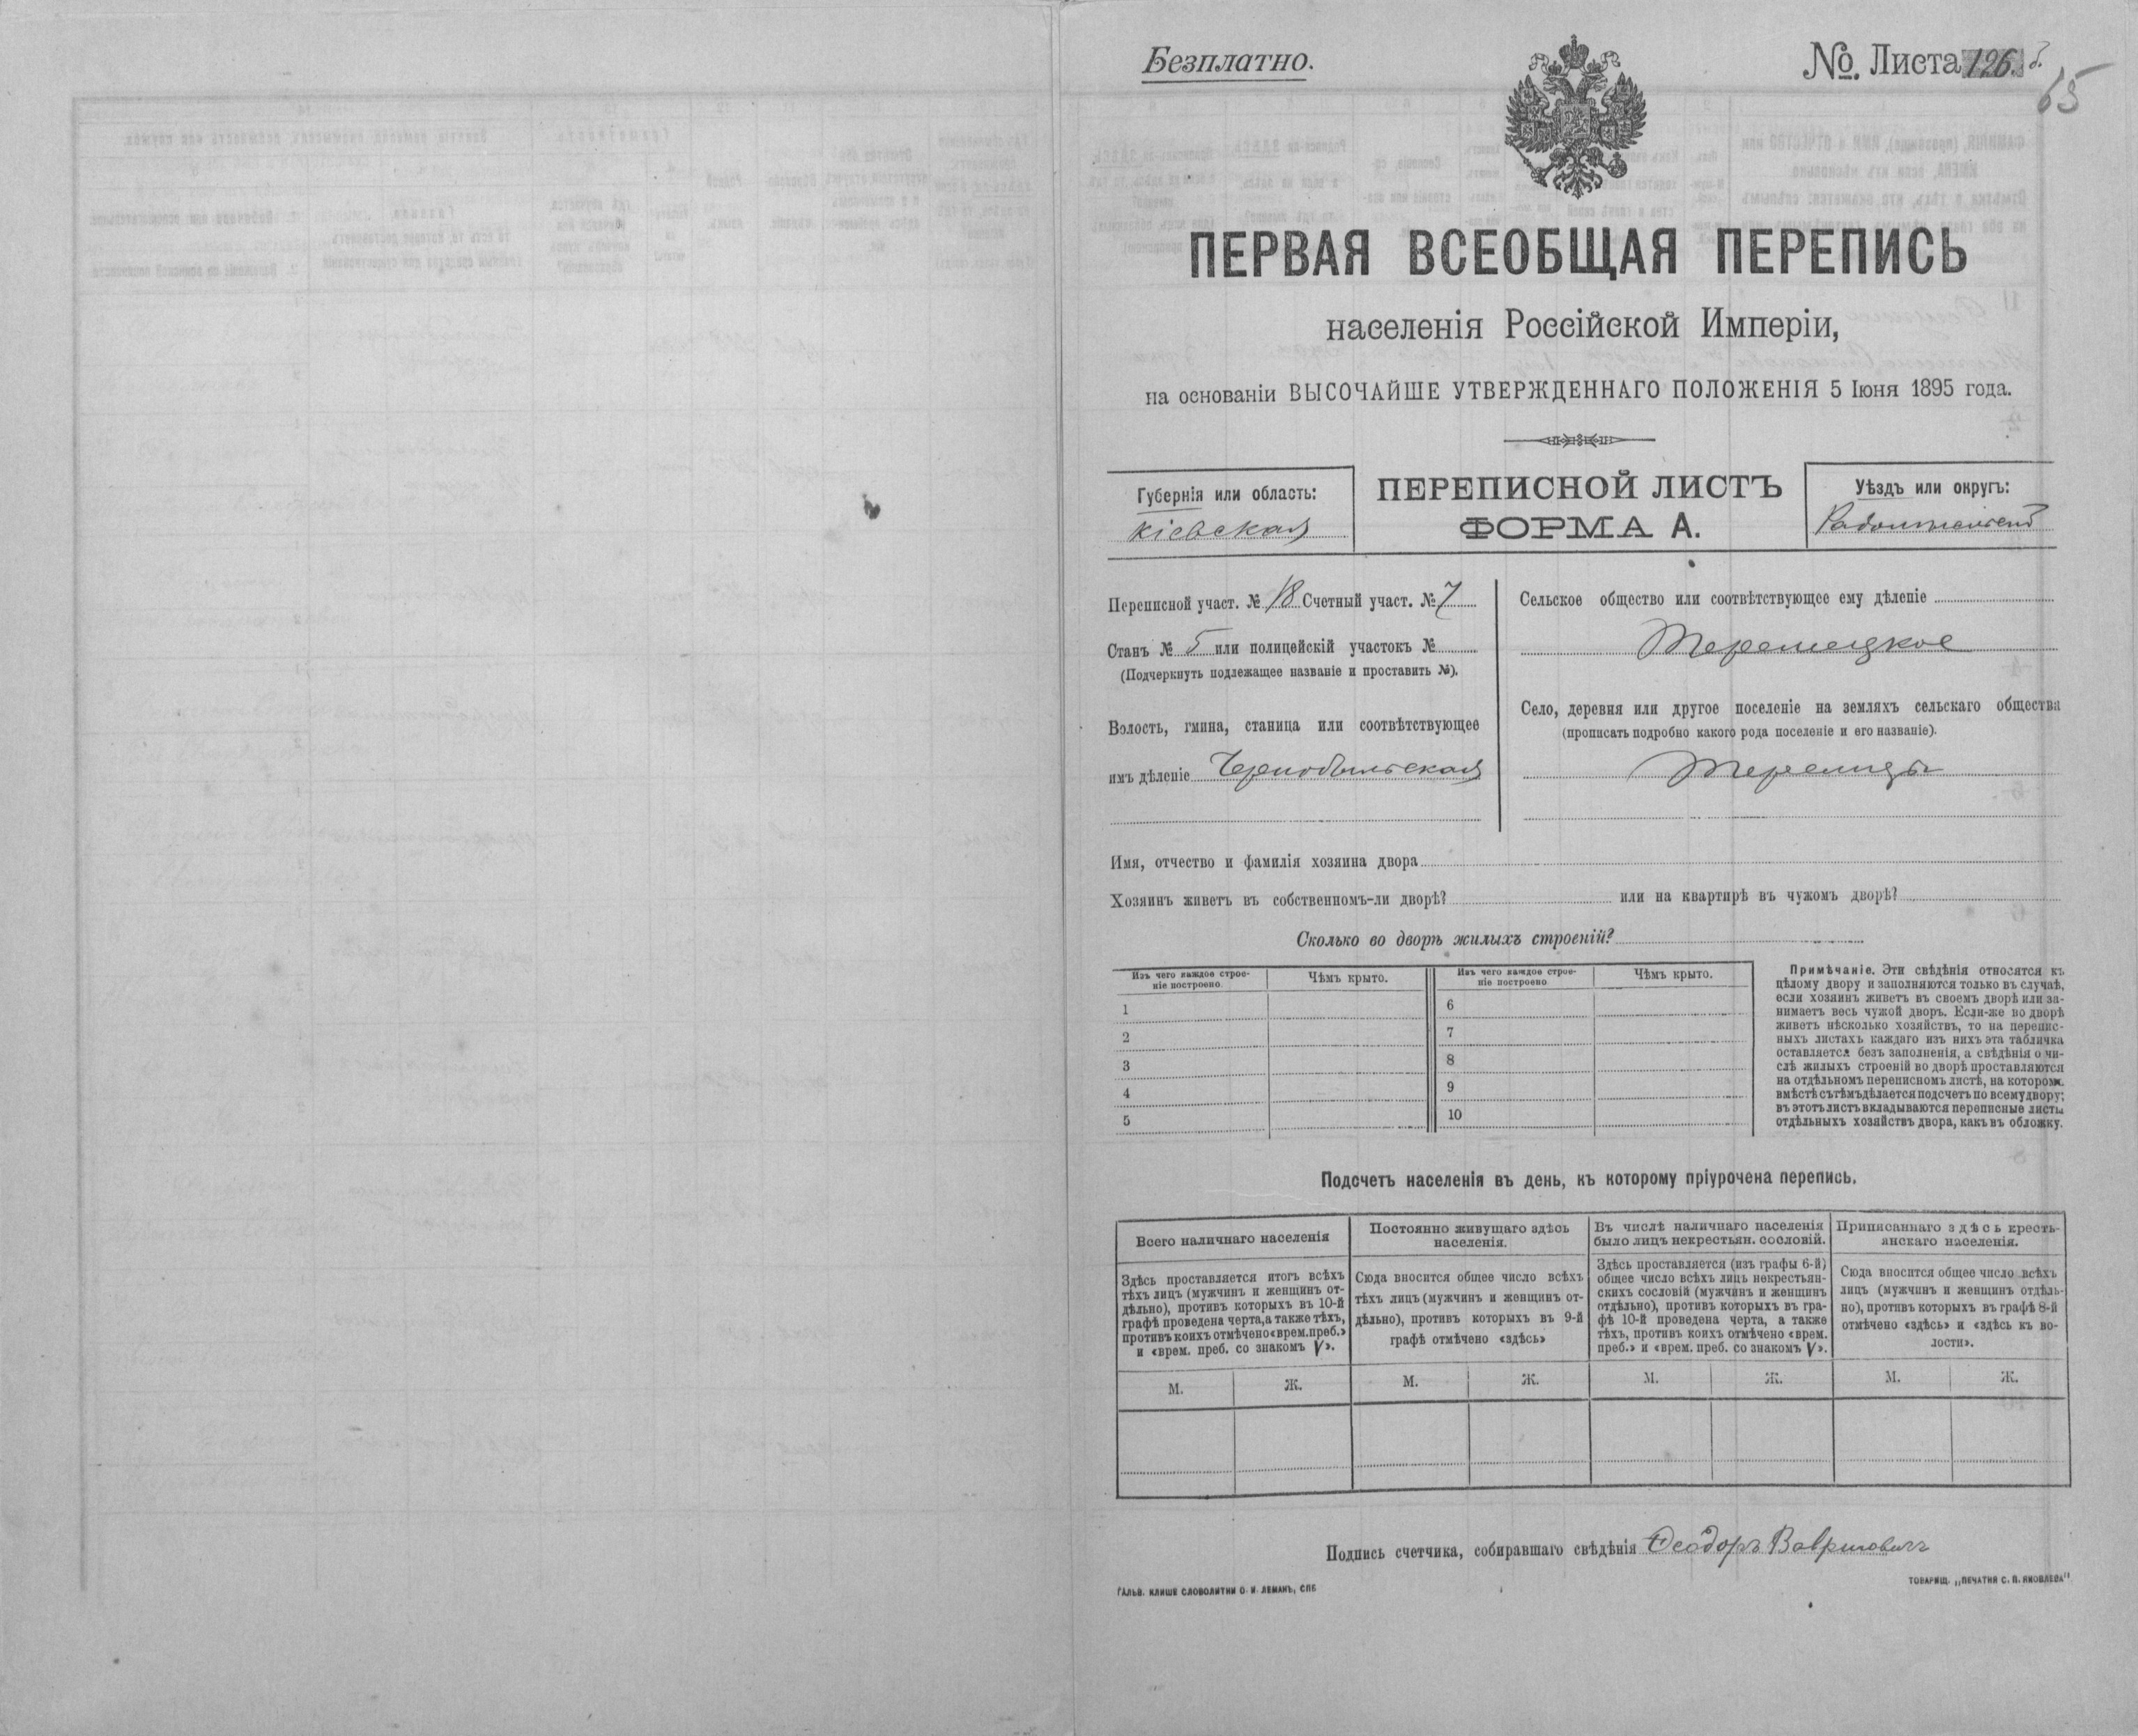 Безплатно.
№. Листа 126.
65
ПЕРВАЯ ВСЕОБЩАЯ ПЕРЕПИСЬ
населенія Россійской Имперіи,
на основаніи ВЫСОЧАЙШЕ УТВЕРЖДЕННАГО ПОЛОЖЕНІЯ 5 Іюня 1895 года.
Губернія или область:
Кіевская
ПЕРЕПИСНОЙ ЛИСТЪ
ФОРМА А.
Уѣздъ или округъ:
Радомысльскій
Переписной участ. № 18 Счетный участ. № 7
Станъ № 5 или полицейскій участокъ №
(Подчеркнуть подлежащее названіе и проставить №).
Волость, гмина, станица или соотвѣтствующее
имъ дѣленіе Чернобыльская
Сельское общество или соотвѣтствующее ему дѣленіе
Теремецкое
Село, деревня или другое поселеніе на земляхъ сельскаго общества
(прописать подробно какого рода поселеніе и его названіе).
Теремцы
Имя, отчество и фамилія хозяина двора
Хозяинъ живетъ въ собственномъ-ли дворѣ? или на квартирѣ въ чужомъ дворѣ?
Сколько во дворѣ жилыхъ строеній?
Изъ чего каждое строе-
ніе построено
Чѣмъ крыто.
Изъ чего каждое строе-
ніе построено
Чѣмъ крыто.
1
2
3
4
5
6
7
8
9
10
Примѣчаніе. Эти свѣдѣнія относятся къ
цѣлому двору и заполняются только въ случаѣ,
если хозяинъ живетъ въ своемъ дворѣ или за-
нимаетъ весь чужой дворъ. Если-же во дворѣ
живетъ нѣсколько хозяйствъ, то на перепис-
ныхъ листахъ каждаго изъ нихъ эта табличка
оставляется безъ заполненія, а свѣдѣнія о чи-
слѣ жилыхъ строеній во дворѣ проставляются
на отдѣльномъ переписномъ листѣ, на которомъ
вмѣстѣ съ тѣмъ дѣлается подсчетъ по всему двору;
въ этотъ листъ вкладываются переписные листы
отдѣльныхъ хозяйствъ двора, какъ въ обложку.
Подсчетъ населенія въ день, къ которому пріурочена перепись.
Всего наличнаго населенія
Здѣсь проставляется итогъ всѣхъ
тѣхъ лицъ (мужчинъ и женщинъ от-
дѣльно), противъ которыхъ въ 10-й
графѣ проведена черта, а также тѣхъ,
противъ коихъ отмѣчено «врем. преб.»
и «врем. преб. со знакомъ V».
М. Ж.
Постоянно живущаго здѣсь
населенія.
Сюда вносится общее число всѣхъ
тѣхъ лицъ (мужчинъ и женщинъ от-
дѣльно), противъ которыхъ въ 9-й
графѣ отмѣчено «здѣсь»
М. Ж.
Въ числѣ наличнаго населенія
было лицъ некрестьян. сословій.
Здѣсь проставляется (изъ графы 6-й)
общее число всѣхъ лицъ некрестьян-
скихъ сословій (мужчинъ и женщинъ
отдѣльно), противъ которыхъ въ гра-
фѣ 10-й проведена черта, а также
тѣхъ, противъ коихъ отмѣчено «врем.
преб.» и «врем. преб. со знакомъ V».
М. Ж.
Приписаннаго здѣсь кресть-
янскаго населенія.
Сюда вносится общее число всѣхъ
лицъ (мужчинъ и женщинъ отдѣль-
но), противъ которыхъ въ графѣ 8-й
отмѣчено «здѣсь» и «здѣсь къ во-
лости».
М. Ж.
Подпись счетчика, собиравшаго свѣдѣнія Ѳеодоръ
ГАЛЬВ. КЛИШЕ СЛОВОЛИТНИ О. И. ЛЕМАНЪ, СПБ
ТОВАРИЩ. „ПЕЧАТНЯ С. П. ЯКОВЛЕВА"